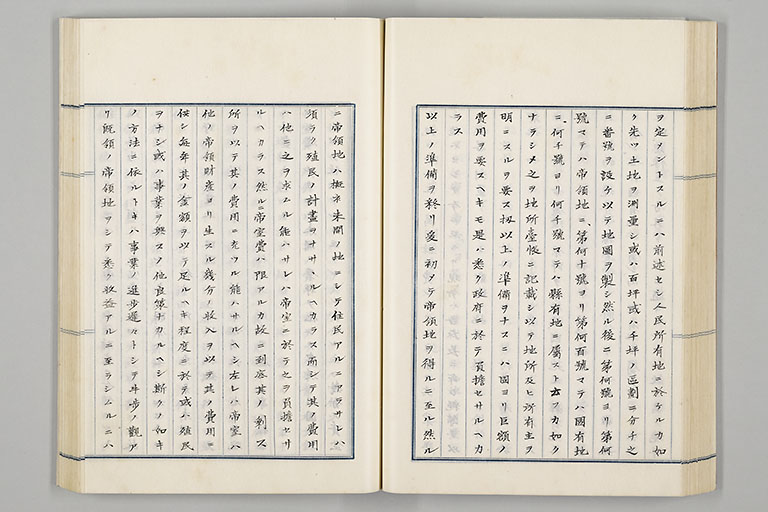 ヲ定メントスルニハ前述セシ人民所有地ニ於ケルカ如
ク先ツ土地ヲ測量シ或ハ百坪或ハ千坪ノ區劃ニ分チ之
ニ番號ヲ設ケ以テ地圖ヲ製シ然ル後ニ第何號ヨリ第何
號マテハ帝領地ニ、第何十號ヨリ第何百號マテハ國有地
ニ何千號ヨリ何千號マテハ縣有地ニ屬スト云フカ如ク
ナラシメ之ヲ地所臺帳ニ記載シ以テ地所及ヒ所有主ヲ
明ニスルヲ要ス扨以上ノ準備ヲナスニハ固ヨリ巨額ノ
費用ヲ要スヘキモ是ハ悉ク政府ニ於テ負擔セサルヘカ
ラス
以上ノ準備ヲ終リ爰ニ初メテ帝領地ヲ得ルニ至ル然ル
ニ帝領地ハ概ネ未開ノ地ニシテ住民アルニアラサレハ
須ラク殖民ノ計畫ヲナサヽルヘカラス而シテ其ノ費用
ハ他ニ之ヲ求ムル能ハサレハ帝室ニ於テ之ヲ負擔セサ
ルヘカラス然ルニ帝室費ハ限アルカ故ニ到底其ノ剩ス
所ヲ以テ其ノ費用ニ充ツル能ハサルヘシ左レハ帝室ハ
他ノ帝領財產ヨリ生スル幾分ノ收入ヲ以テ其ノ費用ニ
供シ每年其ノ金額ヲ以テ足ルヘキ程度ニ於テ或ハ殖民
ヲナシ或ハ事業ヲ興スノ他良策ナカルヘシ斯クノ如キ
ノ方法ニ依ルトキハ事業ノ進步遲々トシテ牛步ノ觀ア
リ既領ノ帝領地ヲシテ悉ク收益アルニ至ラシムルニハ